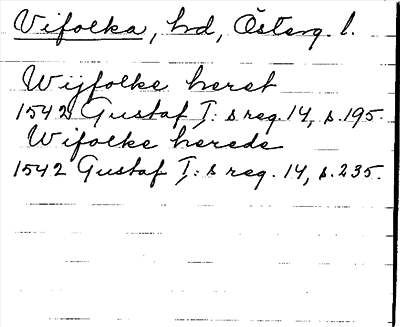 Vifolka, hd, Österg. l.
Wijfolke heret
1542 Gustaf I:s reg. 14, s. 195.
Wifolke herede
1542 Gustaf I:s reg. 14, s. 235.